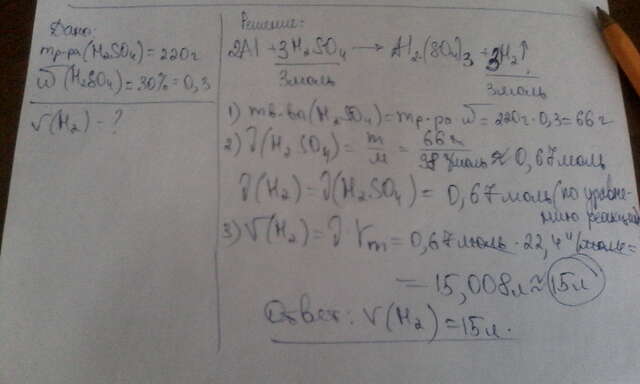 Дано:
mр-ра(H₂SO₄)=220г
ω(H₂SO₄)=30%=0,3
V(H₂)-?
Решение:
2Al+3H₂SO₄→Al₂(SO₄)₃+3H₂↑
3моль 3моль
1) mв-ва(H₂SO₄)=mр-ра·ω=220г·0,3=66г
2) ν(H₂SO₄)=m/M=66г/98г/моль≈0,67моль
ν(H₂)=ν(H₂SO₄)=0,67моль(по уравне-
нию реакции)
3) V(H₂)=ν·Vm=0,67моль·22,4л/моль=
=15,008л≈15л
Ответ: V(H₂)=15л.